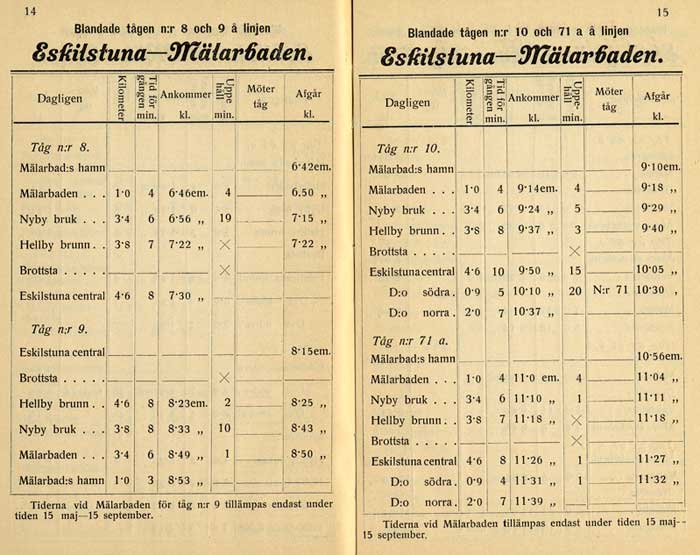 14
Blandade tågen n:r 8 och 9 å linjen
Eskilstuna—Mälarbaden.
Dagligen | Kilometer | Tid för gången min. | Ankommer kl. | Uppehåll min. | Möter tåg | Afgår kl.
Tåg n:r 8.
Mälarbad:s hamn 6·42em.
Mälarbaden . . . 1·0 4 6·46em. 4 6.50 „
Nyby bruk . . . 3·4 6 6·56 „ 19 7·15 „
Hellby brunn . . 3·8 7 7·22 „ × 7·22 „
Brottsta . . . . . ×
Eskilstuna central 4·6 8 7·30 „
Tåg n:r 9.
Eskilstuna central 8·15em.
Brottsta . . . . . ×
Hellby brunn . . 4·6 8 8·23em. 2 8·25 „
Nyby bruk . . . 3·8 8 8·33 „ 10 8·43 „
Mälarbaden . . . 3·4 6 8·49 „ 1 8·50 „
Mälarbad:s hamn 1·0 3 8·53 „
Tiderna vid Mälarbaden för tåg n:r 9 tillämpas endast under
tiden 15 maj—15 september.
15
Blandade tågen n:r 10 och 71 a å linjen
Eskilstuna—Mälarbaden.
Dagligen | Kilometer | Tid för gången min. | Ankommer kl. | Uppe-håll min. | Möter tåg | Afgår kl.
Tåg n:r 10.
Mälarbad:s hamn 9·10em.
Mälarbaden . . . 1·0 4 9·14em. 4 9·18 „
Nyby bruk . . . 3·4 6 9·24 „ 5 9·29 „
Hellby brunn . . 3·8 8 9·37 „ 3 9·40 „
Brottsta . . . . . ×
Eskilstuna central 4·6 10 9·50 „ 15 10·05 „
D:o södra . 0·9 5 10·10 „ 20 N:r 71 10·30 ,
D:o norra . 2·0 7 10·37 „
Tåg n:r 71 a.
Mälarbad:s hamn 10·56em.
Mälarbaden . . . 1·0 4 11·0 em. 4 11·04 „
Nyby bruk . . . 3·4 6 11·10 „ 1 11·11 „
Hellby brunn . 3·8 7 11·18 „ × 11·18 „
Brottsta . . . . . ×
Eskilstuna central 4·6 8 11·26 „ 1 11·27 „
D:o södra . 0·9 4 11·31 „ 1 11·32 „
D:o norra . 2·0 7 11·39 „
Tiderna vid Mälarbaden tillämpas endast under tiden 15 maj--
15 september.